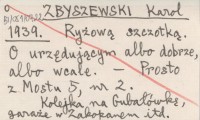 ZBYSZEWSKI Karol
1939. Ryżową szczotką.
O urzędującym albo dobrze,
albo wcale. — Prosto
z Mostu 5, nr 2.
Kolejka na Gubałówkę,
garaże w Zakopanem itd.